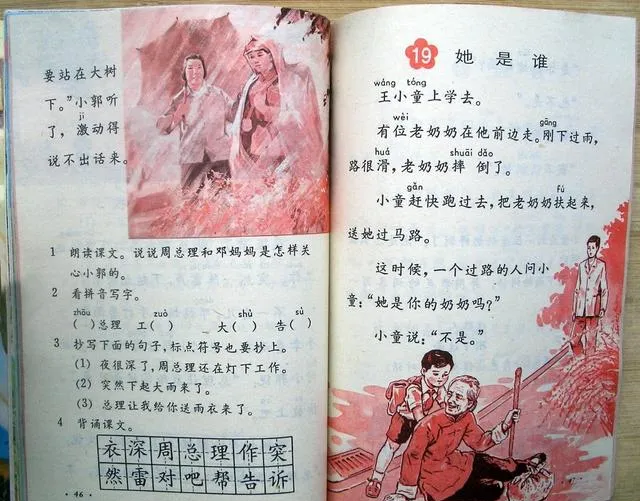 要站在大树
下。”小郭听
jī
了，激动得
说不出话来。
1 朗读课文。说说周总理和邓妈妈是怎样关
心小郭的。
2 看拼音写字。
zhōu zuò shù sù
( )总理 工( ) 大( ) 告( )
3 抄写下面的句子，标点符号也要抄上。
(1) 夜很深了，周总理还在灯下工作。
(2) 突然下起大雨来了。
(3) 总理让我给你送雨衣来了。
4 背诵课文。
衣深周总理作突
然雷对吧帮告诉
· 46 ·
19 她是谁
wáng tóng
王小童上学去。
wèi gāng
有位老奶奶在他前边走。刚下过雨，
huá shuāi dǎo
路很滑，老奶奶摔 倒了。
gǎn fú
小童赶快跑过去，把老奶奶扶起来，
送她过马路。
这时候，一个过路的人问小
童：“她是你的奶奶吗？”
小童说：“不是。”